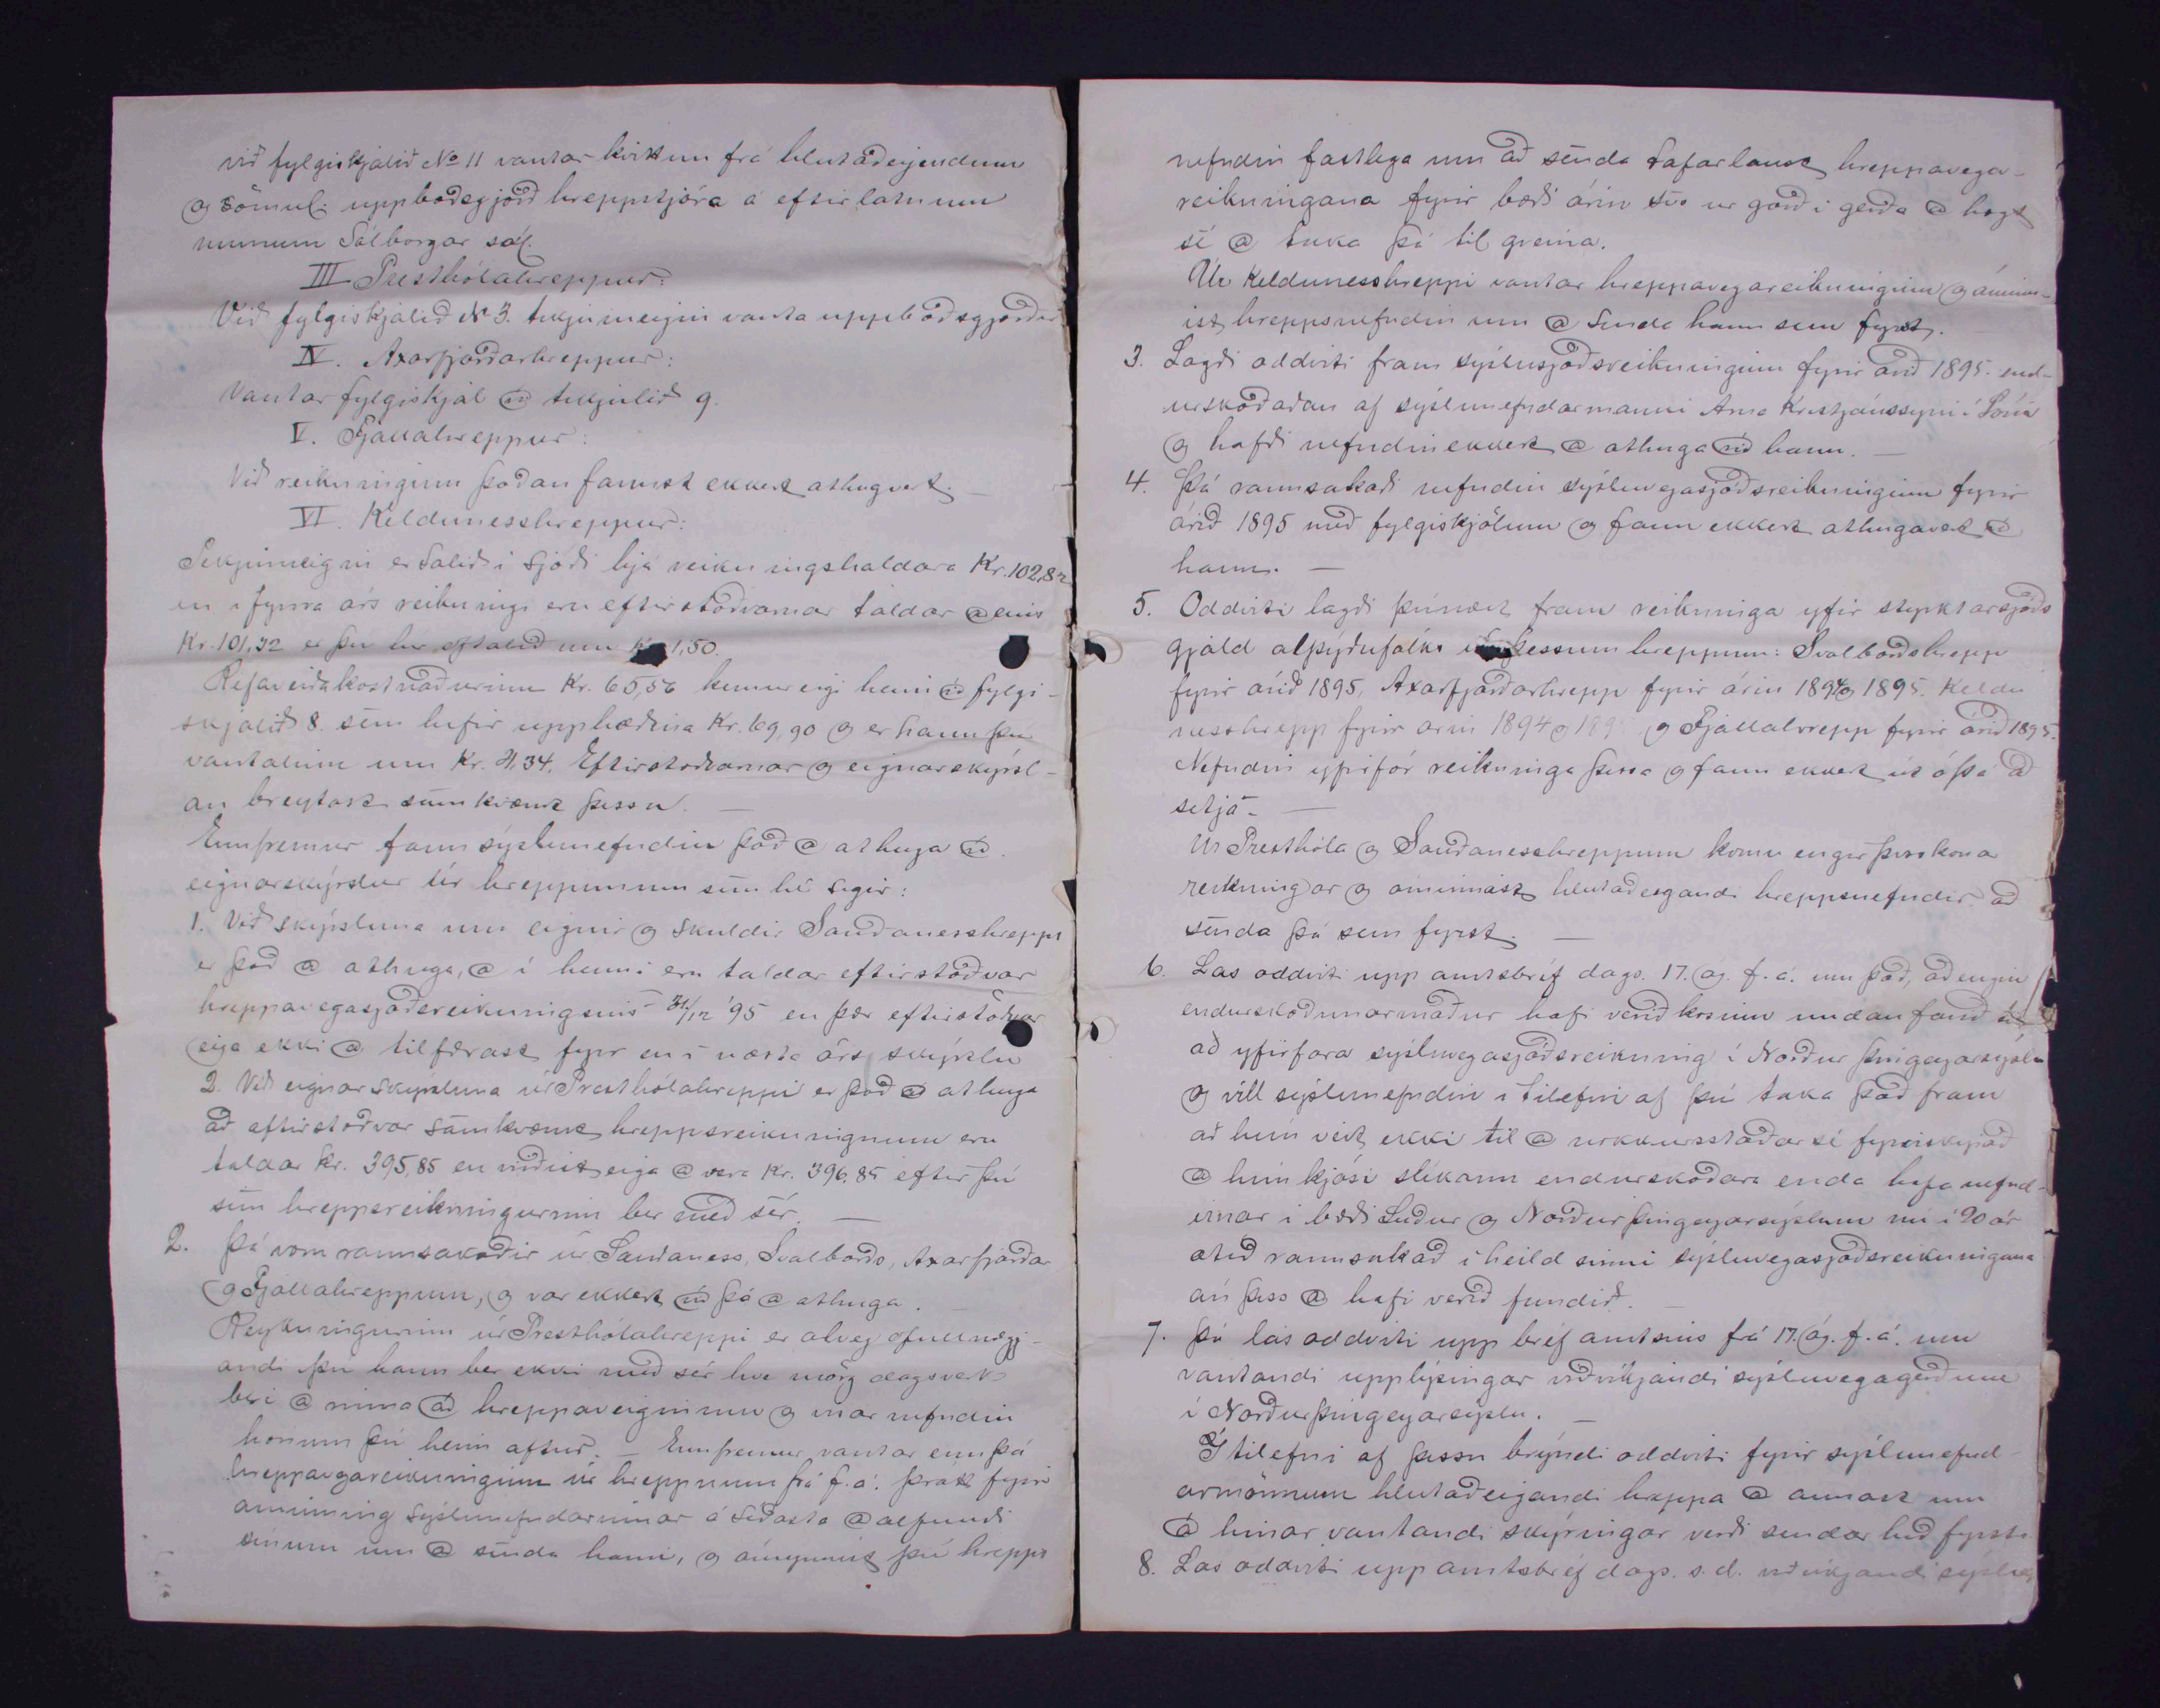 við fylgiskjalið No 11 vantar kvittun frá hlutaðeigendum
og sömul. uppboðsgjörð hreppstjóra á eftirlátnum
munum Sólborgar sál.
III Presthólahreppur:
Við fylgiskjalið N 3. tekjumeginn vanta uppboðsgjörðir
IV. Axarfjarðarhreppur:
Vantar fylgiskjal við tekjulið 9.
V. Fjallahreppur:
Við reikninginn þaðan fannst ekkert athugvert. —
VI. Kelduneshreppur:
Tekjumeginn er talið í sjóði hjá reikningshaldara Kr. 102,82
en í fyrra árs reikningi eru eftirstöðvarnar taldar aðeins
Kr. 101,32 er því hér oftalið um Kr 1,50.
Refaveiðakostnaðurinn Kr. 65,56 kemur eigi heim við fylgi-
skjalið 8. sem hefir upphæðina Kr. 69,90 og er hann því
vantalinn um Kr. 4,34. Eftirstöðvarnar og eignarskýrsl-
an breytast samkvæmt þessu. —
Ennfremur fann sýslunefndin það að athuga við
eignarskýrslur úr hreppunum sem hé segir:
1. Við skýrsluna um eignir og skuldir Sauðaneshrepps
er það að athuga, að í henni eru taldar eftirstöðvar
hreppavegasjóðsreikningsins 31/12 '95 en þær eftirstöðvar
eiga ekki að tilfærast fyr en í næsta árs skýrslu
2. Við eignarskýrsluna úr Presthólahreppi er það að athuga
að eftirstöðvar samkvæmt hreppsreikningnum eru
taldar Kr. 395,85 en virðist eiga að vera Kr. 396,85 eftir því
sem hreppsreikningurinn ber með sér. —
2. Þá voru rannsakaðir úr Sauðaness, Svalbarðs, Axarfjarðar
og Fjallahreppum, og var ekkert við þá að athuga.
Reikningurinn úr Presthólahreppi er alveg ófullnægj-
andi því hann ber ekki með sér hve mörg dagsverk
beri að vinna að hreppaveginum og vísar nefndin
honum því heim aftur. — Ennfremur vantar enn þá
hreppavegareikninginn úr hreppnum frá f. á. þratt fyrir
áminning sýslunefndarinnar á síðasta aðalfundi
sínum um að senda hann, og áminnist því hrepps
nefndin fastlega um að senda tafarlaust hreppavega-
reikningana fyrir bæði árin svo úr garð i gerða að hægt
sé að taka þá til greina.
Úr Kelduneshreppi vantar hreppavegareikninginn og áminn-
ist hreppsnefndin um að senda hann sem fyrst.
3. Lagði oddviti fram sýslusjóðsreikninginn fyrir árið 1895. end-
urskoðaðan af sýslunefndarmanni Árna Kristjánssyni í Lóni
og hafði nefndin ekkert að athuga við hann. —
4. Þá rannsakaði nefndin sýsluvegasjóðsreikninginn fyrir
árið 1895 með fylgiskjölum og fann ekkert athugavert við
hann. —
5. Oddviti lagði þvínæst fram reikninga yfir styrktarsjóðs
gjald alþýðufólks úr þessum hreppum: Svalbarðshrepp
fyrir árið 1895, Axarfjarðarhrepp fyrir árin 1894 og 1895. Keldu
nesshrepp fyrir árin 1894 og 1895 og Fjallahrepp fyrir árið 1895.
Nefndin yfirfór reikninga þessa og fann ekkert út á þá að
setja. —
Úr Presthóla og Sauðaneshreppum komu engir þesskonar
reikningar og áminnast hlutaðeigandi hreppsnefndir að
senda þá sem fyrst. —
6. Las oddviti upp amtsbréf dags. 17. ág. f. á. um það, að engin
endurskoðunarmaður hafi verið kosinn undanfarið til
að yfirfara sýsluvegasjóðsreikning í Norður Þingeyarsýslu
og vill sýslunefndin í tilefni af því taka það fram
að hún veit ekki til að nokkursstaðar sé fyrirskipað
að hún kjósi slíkann endurskoðara enda hafa nefnd-
irnar í bæði Suður og Norðurþingeyarsýslum nú í 20 ár
ætíð rannsakað í heild sinni sýsluvegasjóðsreikningana
án þess að hafi verið fundið. —
7. Þá las oddviti upp bréf amtsins frá 17. ág. f. á. um
vantandi upplýsingar viðvíkjandi sýsluvegagerðum
í Norðurþingeyarsýslu. —
Í tilefni af þessu brýndi oddviti fyrir sýslunefnd-
armönnum hlutaðeigandi hreppa að annast um
að hinar vantandi skýringar verði sendar hið fyrsta
8. Las oddviti upp amtsbréf dags. s. d. viðvíkjandi